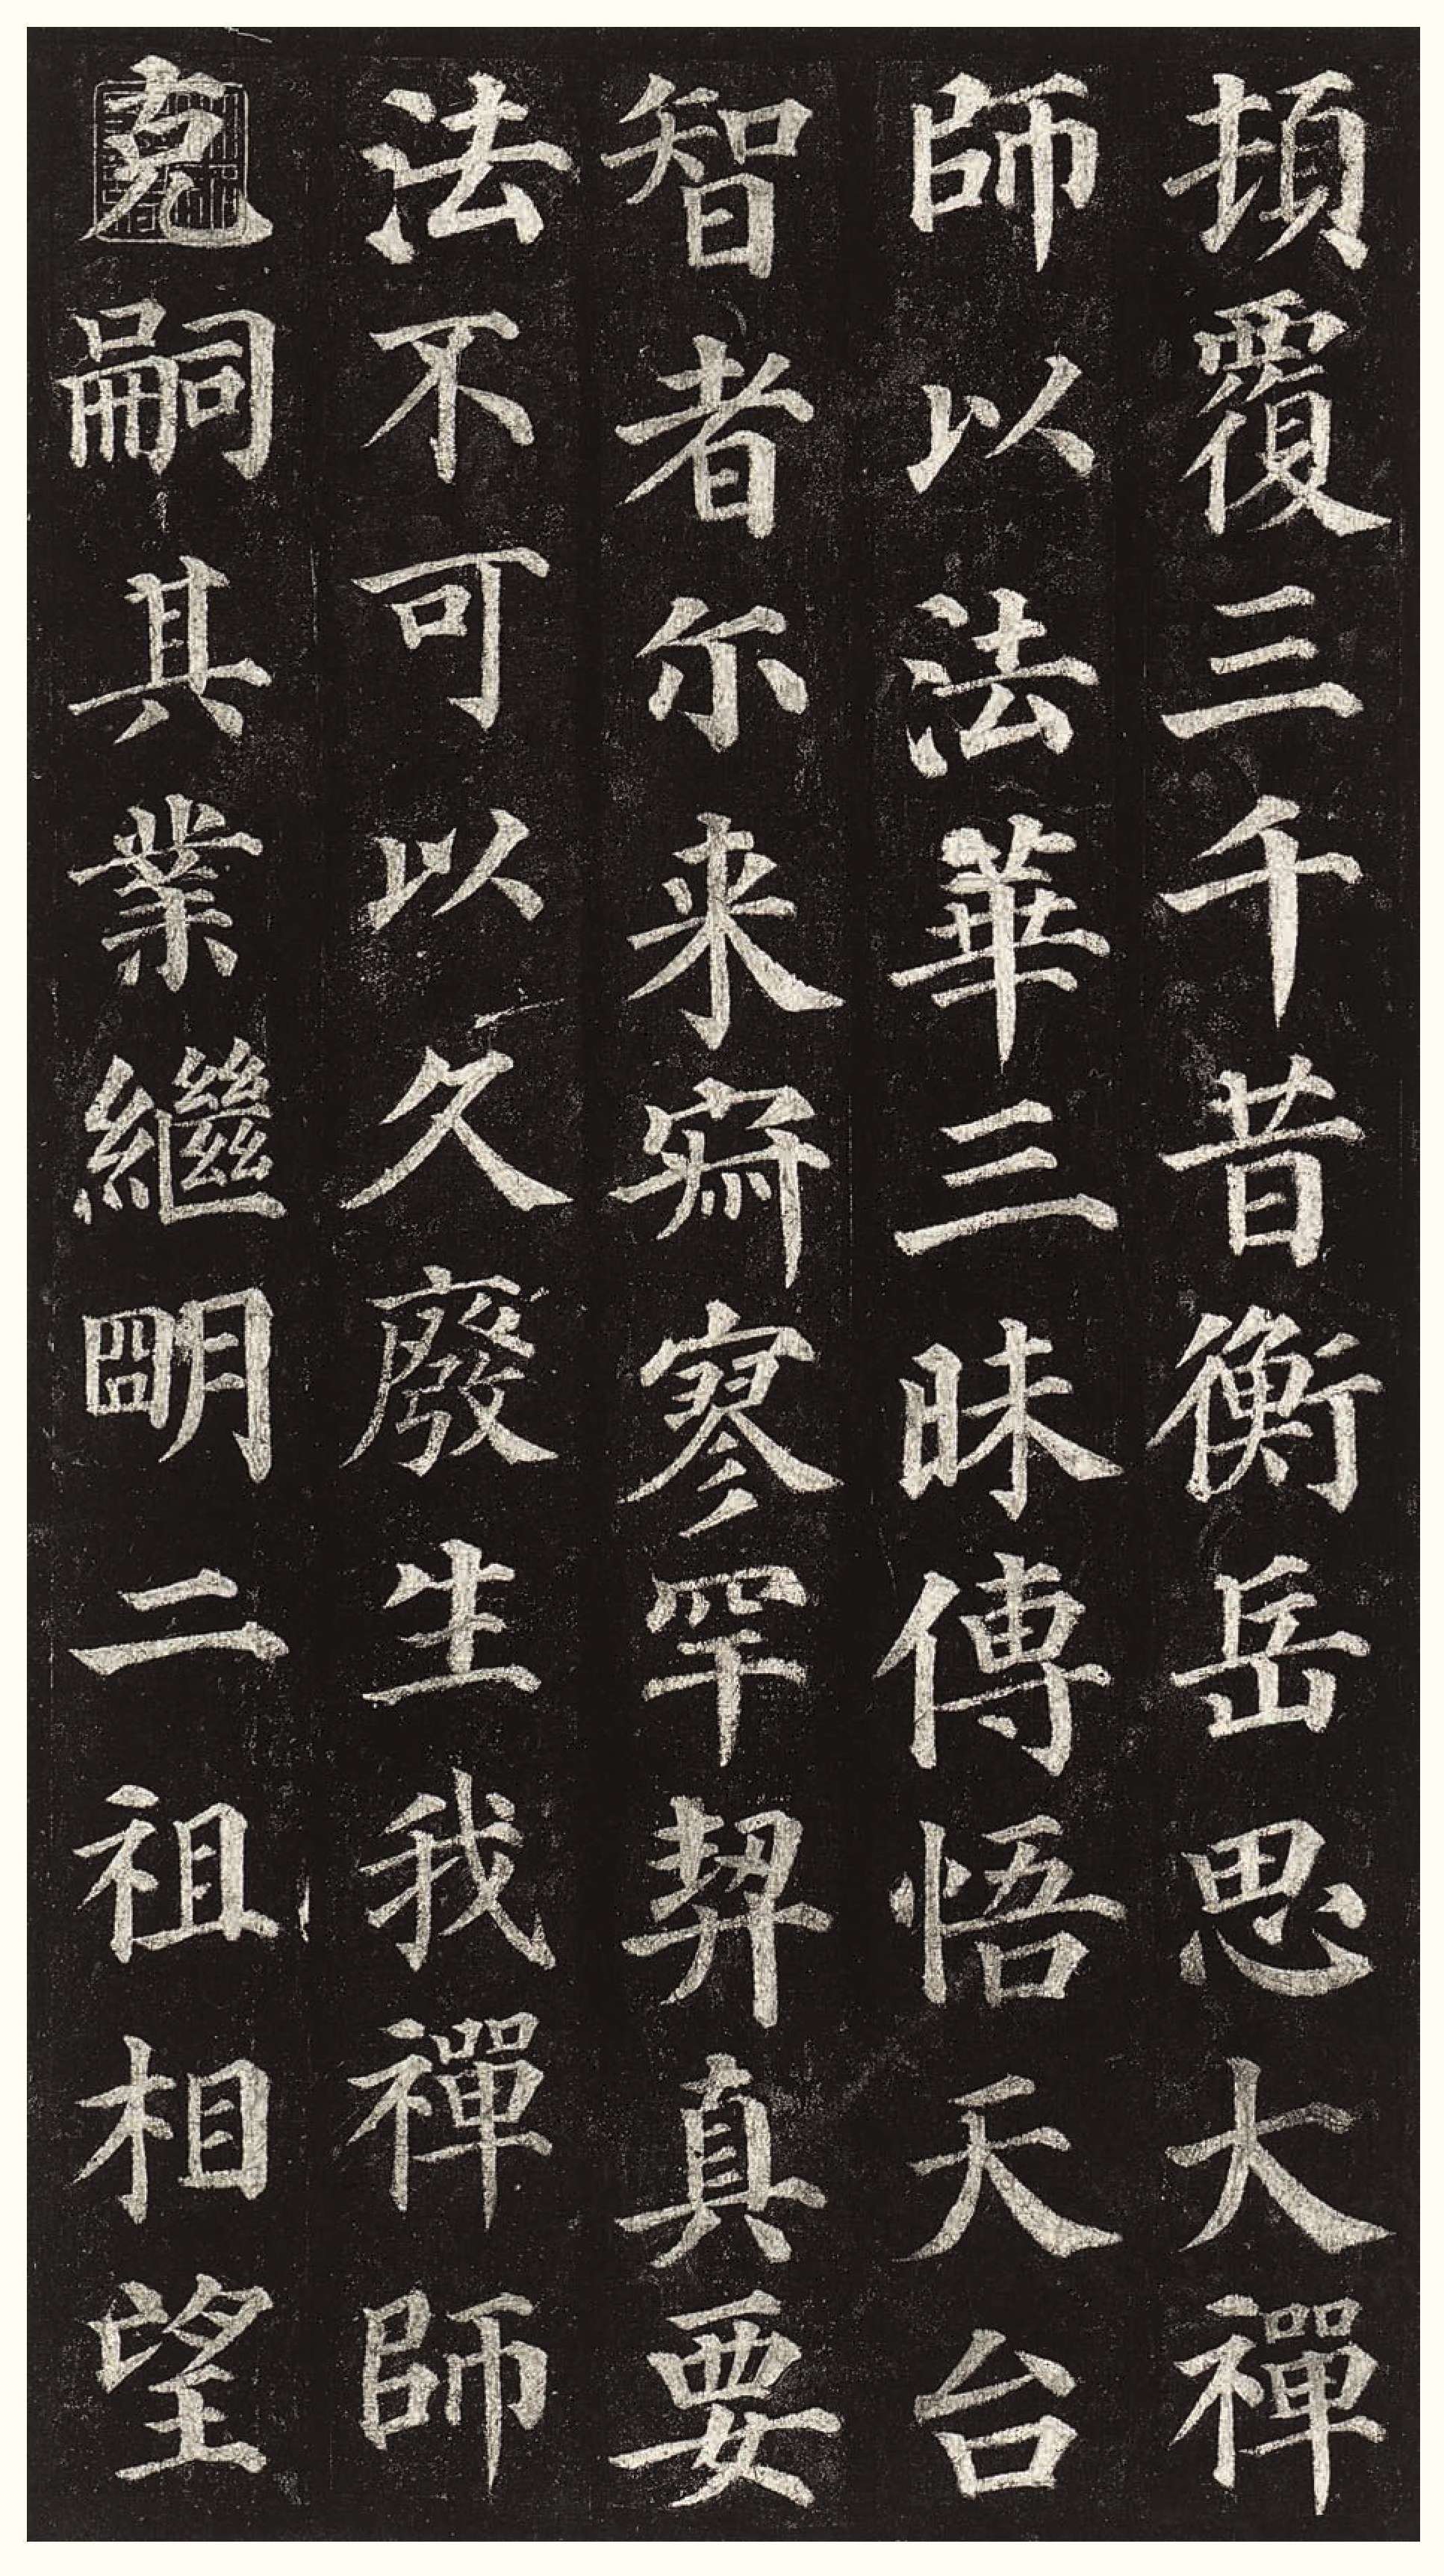 頓覆三千昔衡岳思大禪
師以法華三昧傳悟天台
智者尔来寂寥罕契真要
法不可以久廢生我禪師
克嗣其業繼明二祖相望